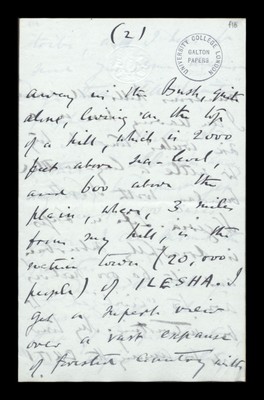 (2)
UNIVERSITY COLLEGE LONDON
GALTON
PAPERS
away in the Bush, quite
alone, living on the top
of a hill, which is 2000
feet above sea-level,
and 600 above the
plain, where, 3 miles
from my hill, is the
native town (20,000
people) of ILESHA. I
get a superb view
over a vast expanse
of forested country with